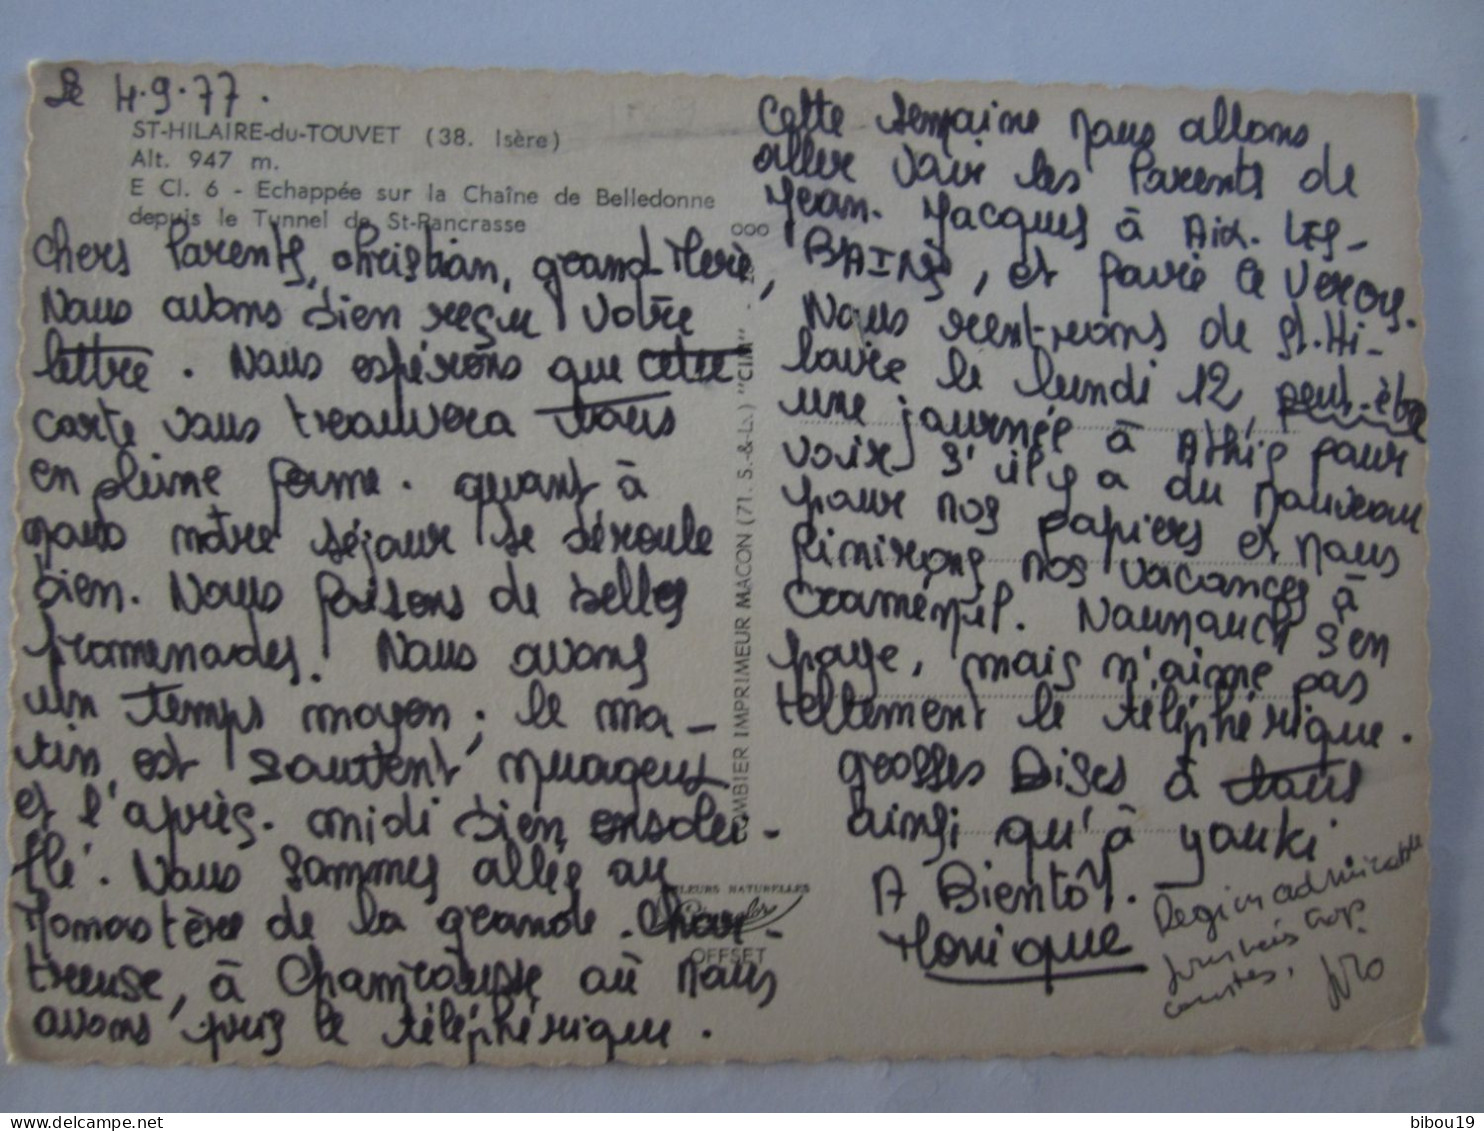 Le 4.9.77.
ST-HILAIRE-du-TOUVET (38. Isère)
Alt. 947 m.
E Cl. 6 - Echappée sur la Chaîne de Belledonne
depuis le Tunnel de St-Pancrasse
Chers Parents, Christian, grand-Mère,
Nous avons bien reçu votre
lettre. Nous espérons que cette
carte vous trouvera tous
en pleine forme. quant à
nous notre séjour se déroule
bien. Nous faisons de belles
promenades. Nous avons
un temps moyen; le ma-
tin est souvent nuageux
et l'après-midi bien ensolei-
llé. Nous sommes allés au
Monastère de la grande Char-
treuse, à Chamrousse où nous
avons pris le téléphérique.
COMBIER IMPRIMEUR MACON (71. S.-&-L.) "CIM"
COULEURS NATURELLES
OFFSET
Cette semaine nous allons
aller voir les Parents de
Jean-Jacques à AIX-LES-
BAINS, et faire le Vercors.
Nous rentrerons de St.Hi-
laire le lundi 12, peut-être
une journée à Athis pour
voir s'il y a du nouveau
pour nos papiers et nous
finirons nos vacances à
Craménil. Nounouch s'en
paye, mais n'aime pas
tellement le téléphérique.
grosses Bises à tous
ainsi qu'à Youki
A Bientôt.
Monique
Region admirable
trop
courtes,